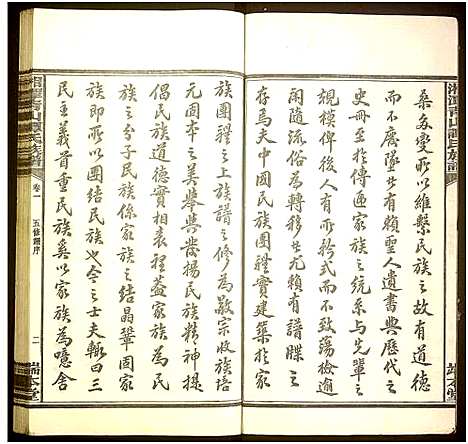 桑多變所以維繫民族之故有道德
而不廢墜也有賴聖人遺書典歷代之
史冊至於傳遞家族之統系與先輩之
規模俾後人有所矜式而不致蕩檢逾
閑隨流俗為轉移其尤有賴譜牒之
存焉夫中國民族團體實建築於家
族團體之上族譜之修為敬宗收族培
元固本之美舉與發揚民族精神提
倡民族道德實相表裡蓋家族為民
族之分子民族係家族之結晶鞏固家
族即所以團結民族也今之士夫輒曰三
民主義首重民族奚以家族為噫舍
湘潭青山譚氏族譜
卷一
五修譜序
二
端本堂
湘潭青山譚氏族譜
端本堂